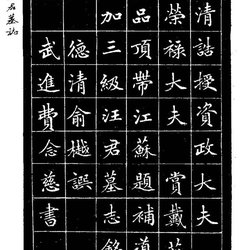 清誥授資政大夫
榮祿大夫 賞戴
品頂帶江蘇題補道
加三級汪君墓志銘
德清俞樾譔
武進費念慈書
君墓誌